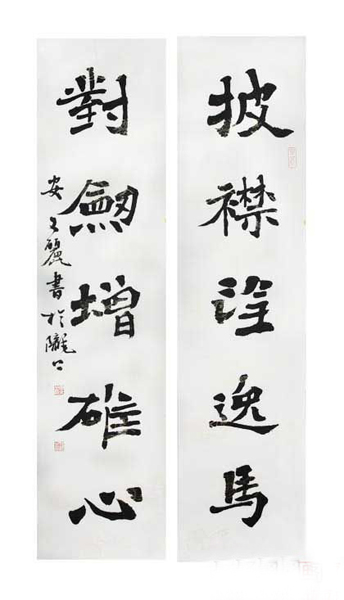 披襟詮逸馬
對劒增雄心
安文麗書於隴上